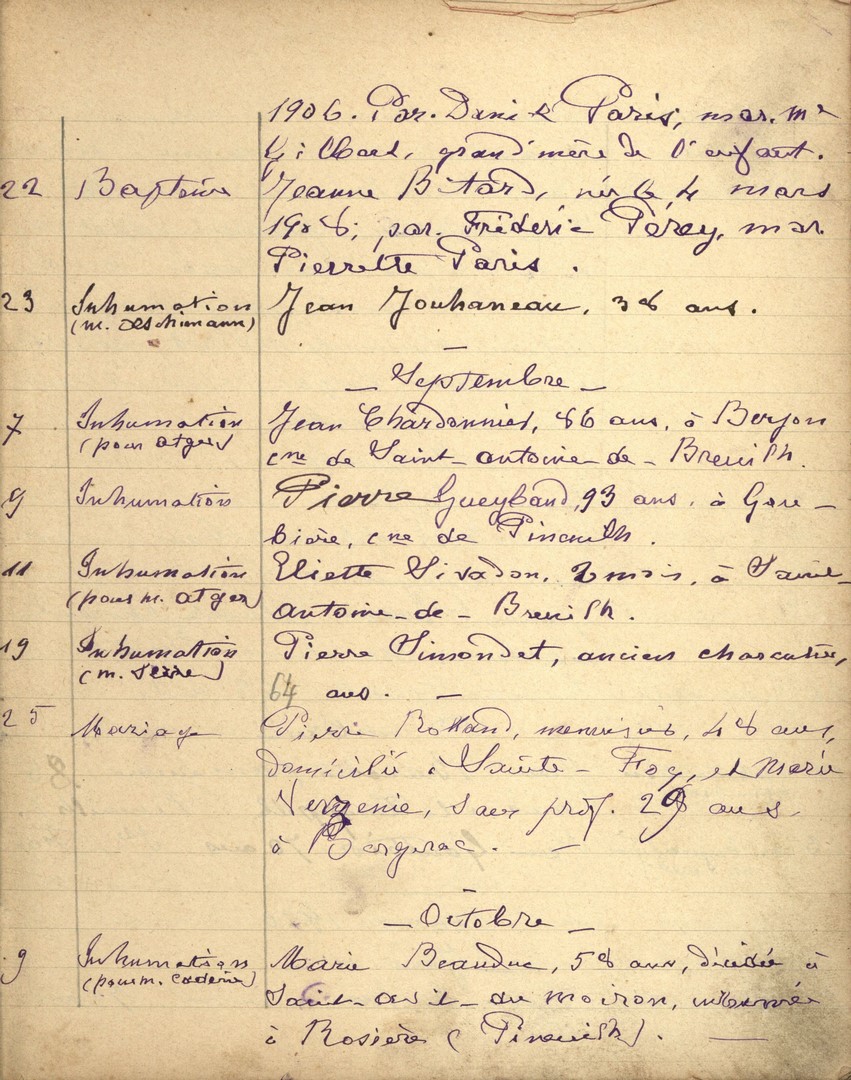 1906. Par. Daniel Paris, mar. Mme
grand'mère de l'enfant.
22 Baptême Jeanne Bitard, née le 4 mars
1908; par. Frédéric Perey, mar.
Pierrette Paris.
23 Inhumation Jean Jouhaneau, 38 ans.
(m. Oeschimann)
— Septembre —
7 Inhumation Jean Chardonnier, 86 ans, à
(pour Atger) cne de Saint-Antoine-de-Breuilh.
9 Inhumation Pierre 93 ans, à Gou-
bière, cne de Pineuilh.
11 Inhumation Eliette Sivadon, 2 mois, à Saint-
(pour m. Atger) Antoine-de-Breuilh.
19 Inhumation Pierre Simondet, ancien charcutier,
(m. Serre) 64 ans. —
25 Mariage Pierre Rolland, menuisier, 48 ans,
domicilié à Sainte-Foy, et Marie
sans prof. 29 ans
à Bergerac. —
— Octobre —
9 Inhumation Marie Beauduc, 58 ans, décédée à
(pour m. Cadène) Saint-Avit-du-Moiron, inhumée
à Rosière (Pineuilh). —